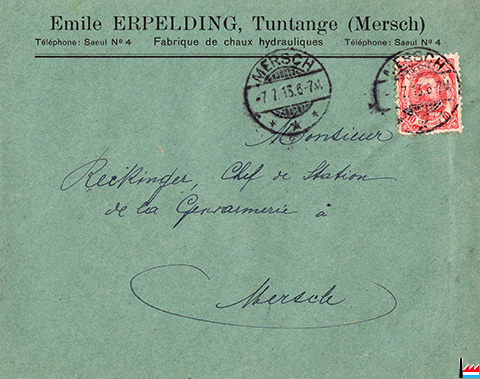 Emile ERPELDING, Tuntange (Mersch)
Téléphone: Saeul Nº 4 Fabrique de chaux hydrauliques Téléphone: Saeul Nº 4
MERSCH
-7.7.13.6-7N.
MERSCH
7.13.6-7N.
10 10
Monsieur
Reckinger, Chef de Station
de la Gendarmerie à
Mersch